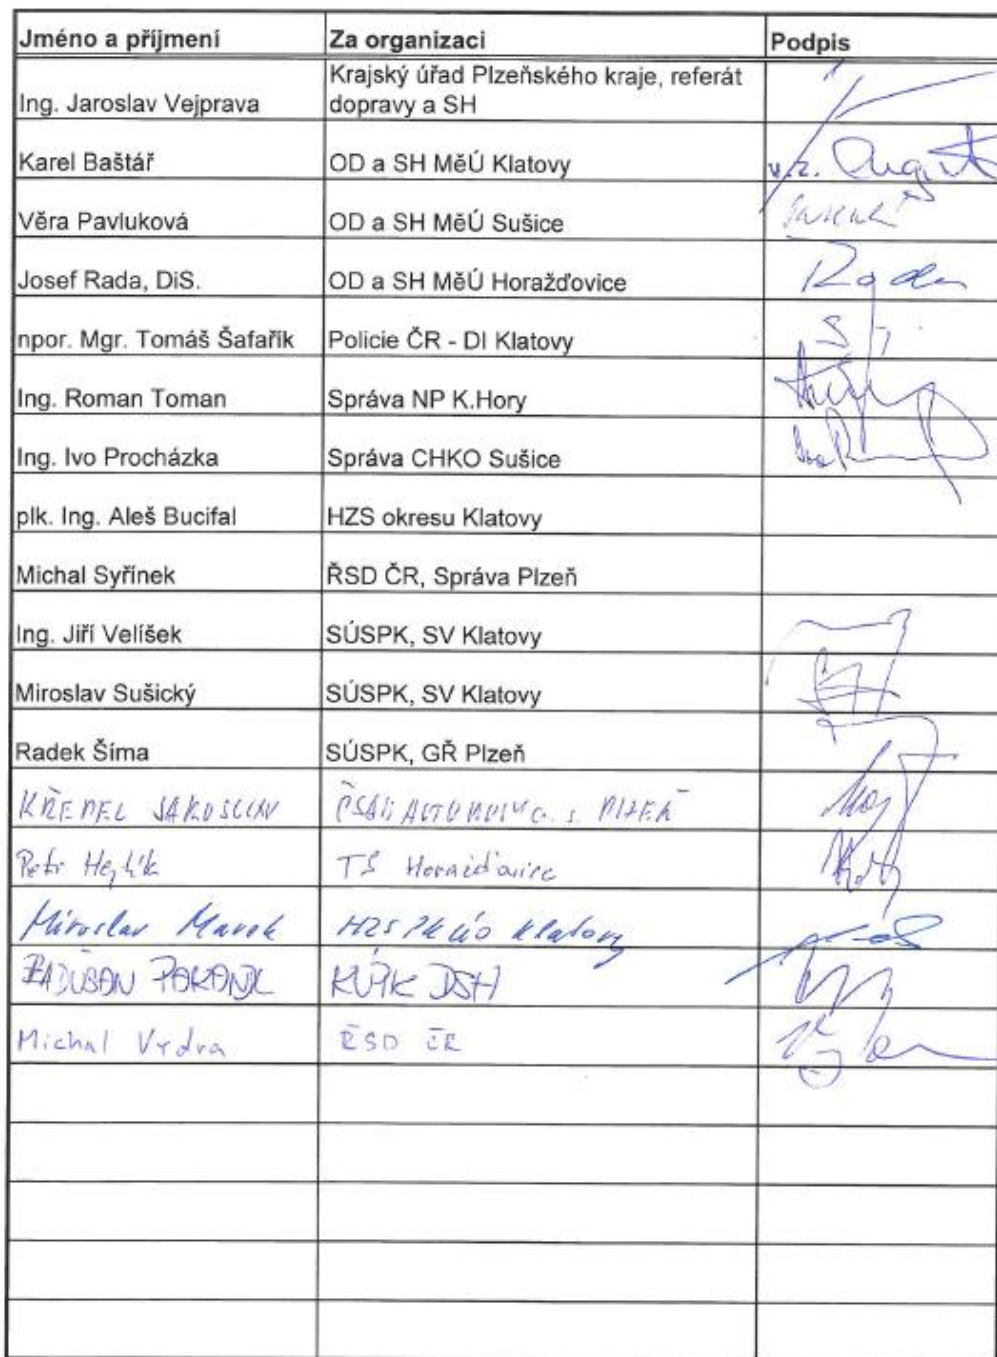 Jméno a příjmení Za organizaci Podpis
Krajský úřad Plzeňského kraje, referát
Ing. Jaroslav Vejprava dopravy a SH
Karel Baštář OD a SH MěÚ Klatovy v.z.
Věra Pavluková OD a SH MěÚ Sušice
Josef Rada, DiS. OD a SH MěÚ Horažďovice Rada
npor. Mgr. Tomáš Šafařík Policie ČR - DI Klatovy
Ing. Roman Toman Správa NP K.Hory
Ing. Ivo Procházka Správa CHKO Sušice
plk. Ing. Aleš Bucifal HZS okresu Klatovy
Michal Syřínek ŘSD ČR, Správa Plzeň
Ing. Jiří Velíšek SÚSPK, SV Klatovy
Miroslav Sušický SÚSPK, SV Klatovy
Radek Šíma SÚSPK, GŘ Plzeň
ČSAD AUTOBUSY a. s. PLZEŇ
Petr TS Horažďovice
Miroslav Marek HZS PK ÚO Klatovy
KÚPK DSH
Michal Vydra ŘSD ČR